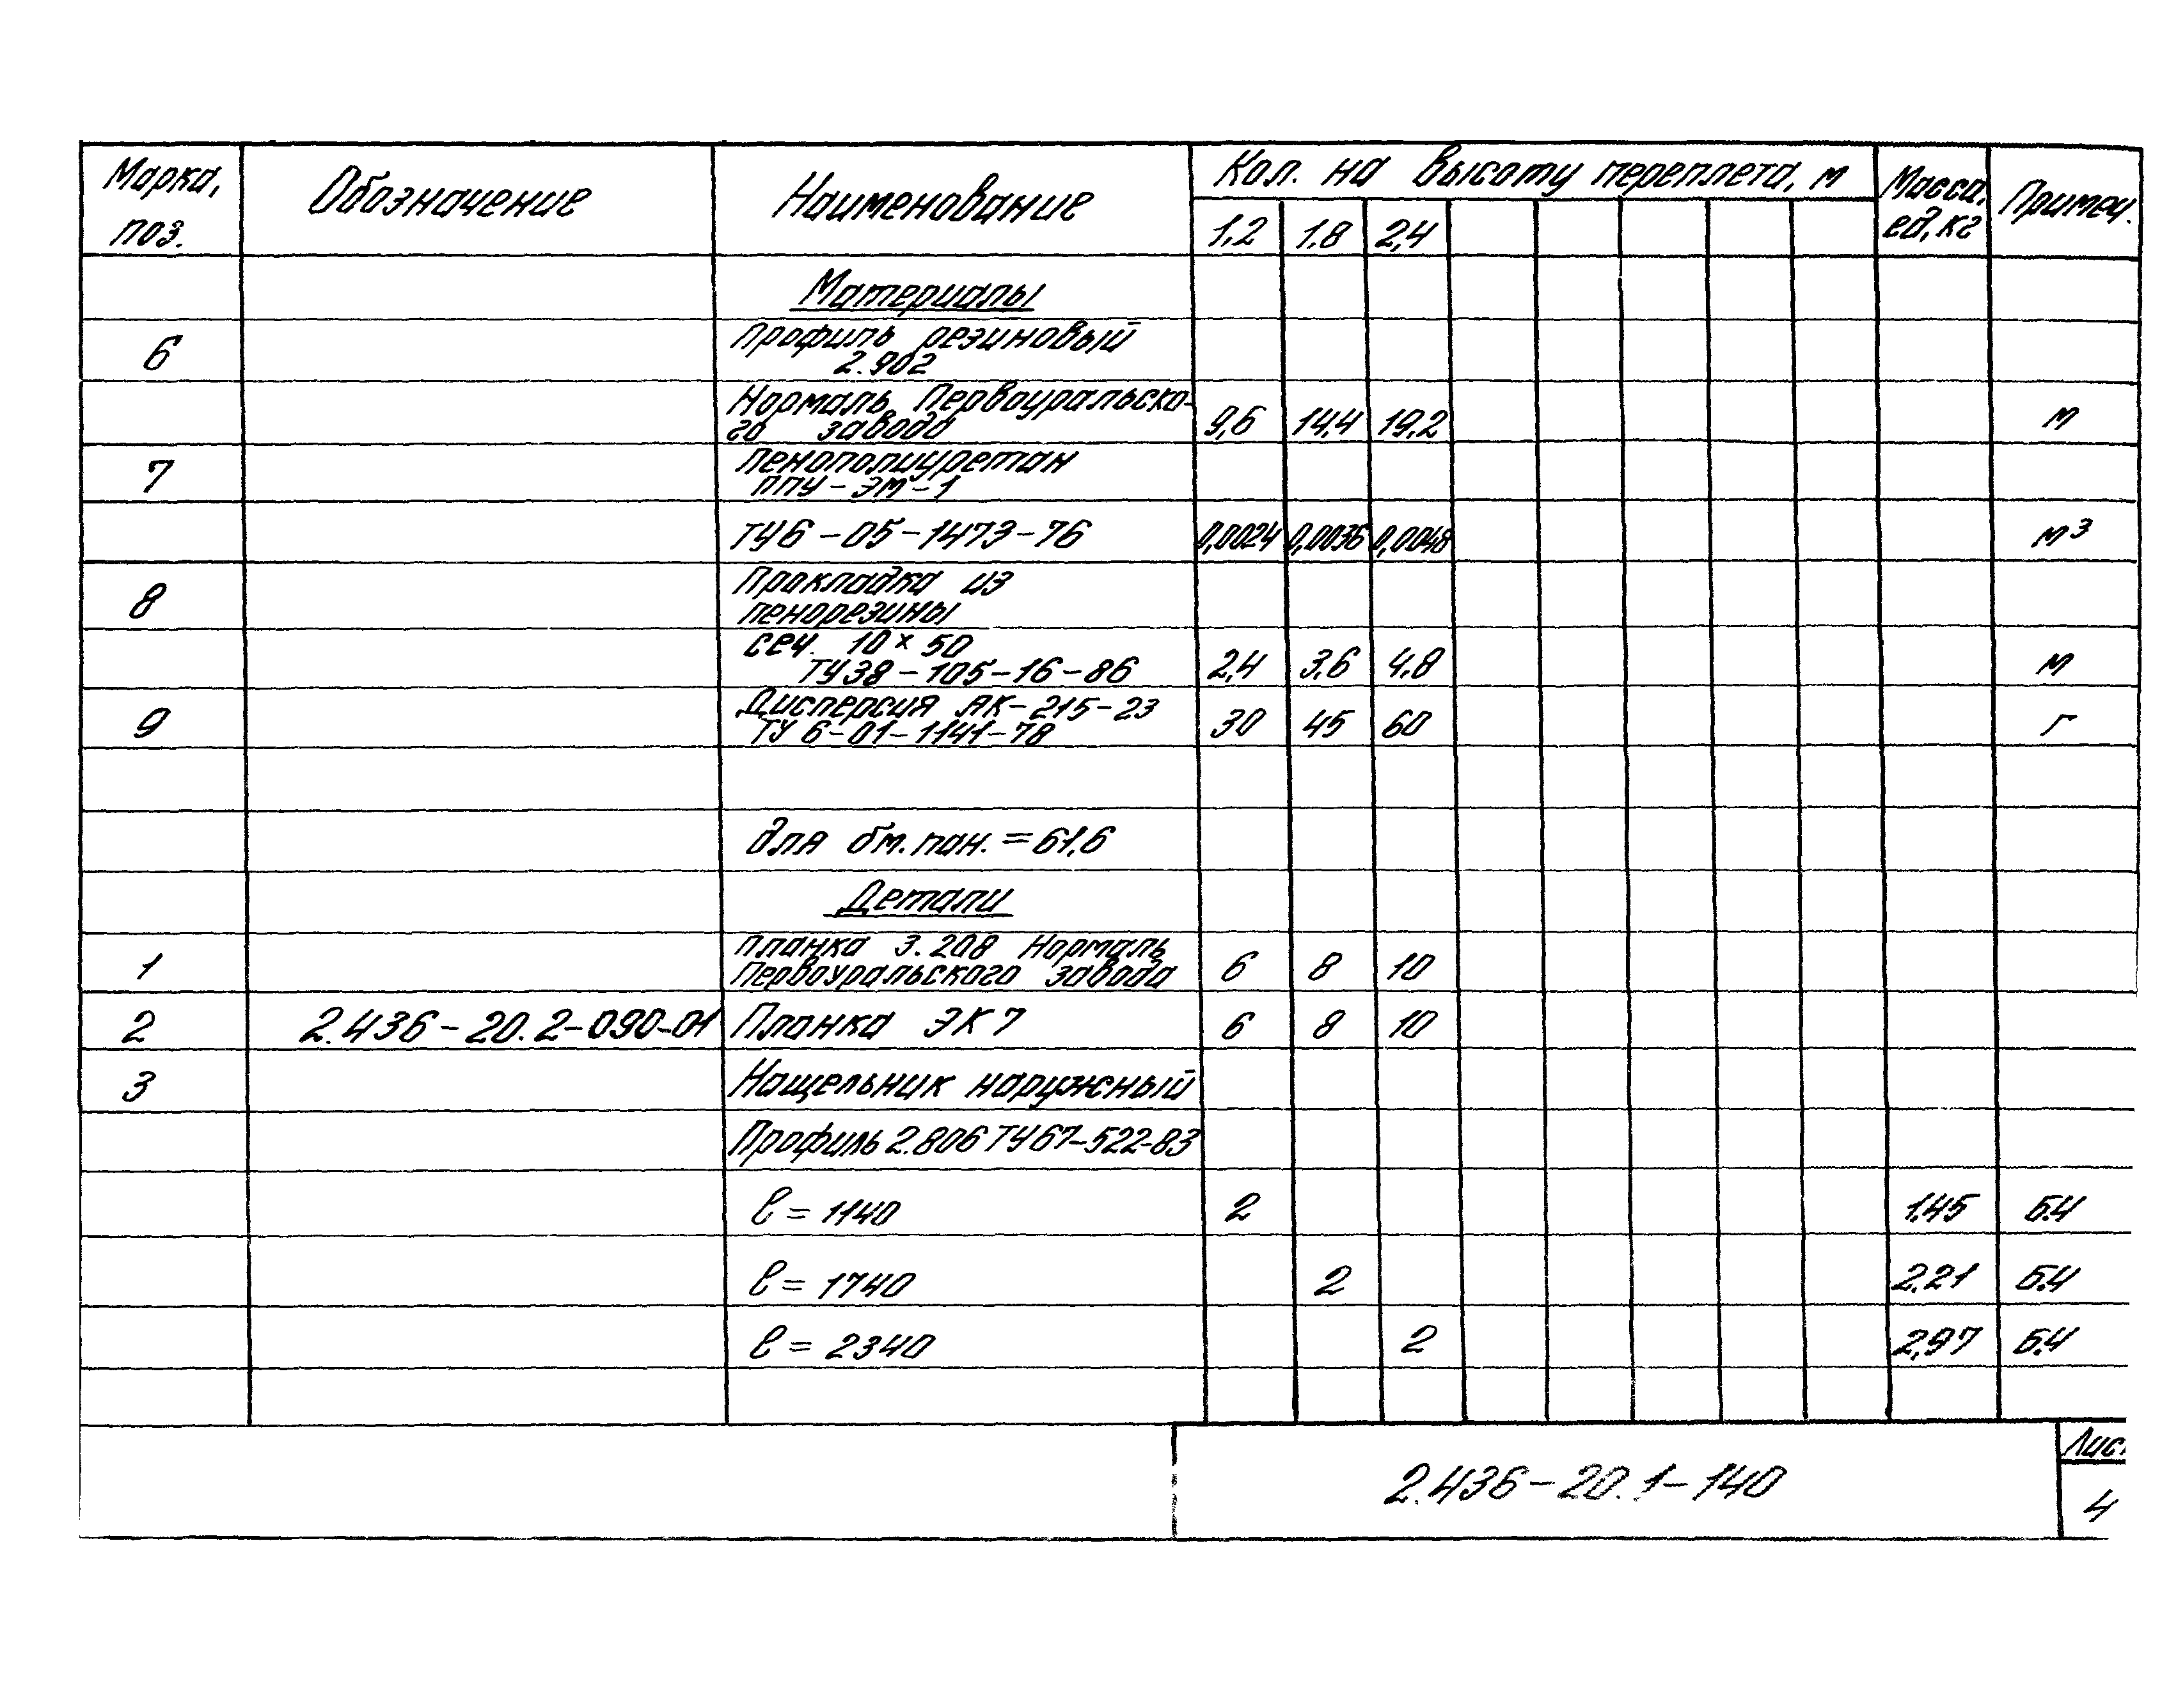 Марка, поз. Обозначение Наименование Кол. на высоту переплета, м Масса, ед, кг Примеч.
1,2 1,8 2,4
Материалы
6 Профиль резиновый
2.902
Нормаль Первоуральско-
го завода 9,6 14,4 19,2 м
7 Пенополиуретан
ППУ-ЭМ-1
ТУ6-05-1473-76 0,0024 0,0036 0,0048 м³
8 Прокладка из
пенорезины
сеч. 10×50
ТУ38-105-16-86 2,4 3,6 4,8 м
9 Дисперсия АК-215-23
ТУ 6-01-1141-78 30 45 60 г
для бм.пан. = 61,6
Детали
1 Планка 3.208 Нормаль
Первоуральского завода 6 8 10
2 2.436-20.2-090-01 Планка ЭК7 6 8 10
3 Нащельник наружный
Профиль 2.806 ТУ67-522-83
ℓ = 1140 2 1,45 Б.Ч
ℓ = 1740 2 2,21 Б.Ч
ℓ = 2340 2 2,97 Б.Ч
2.436-20.1-140
Лист
4